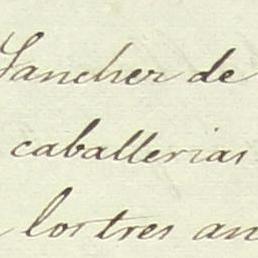 Sancher de
caballerias
los tres an